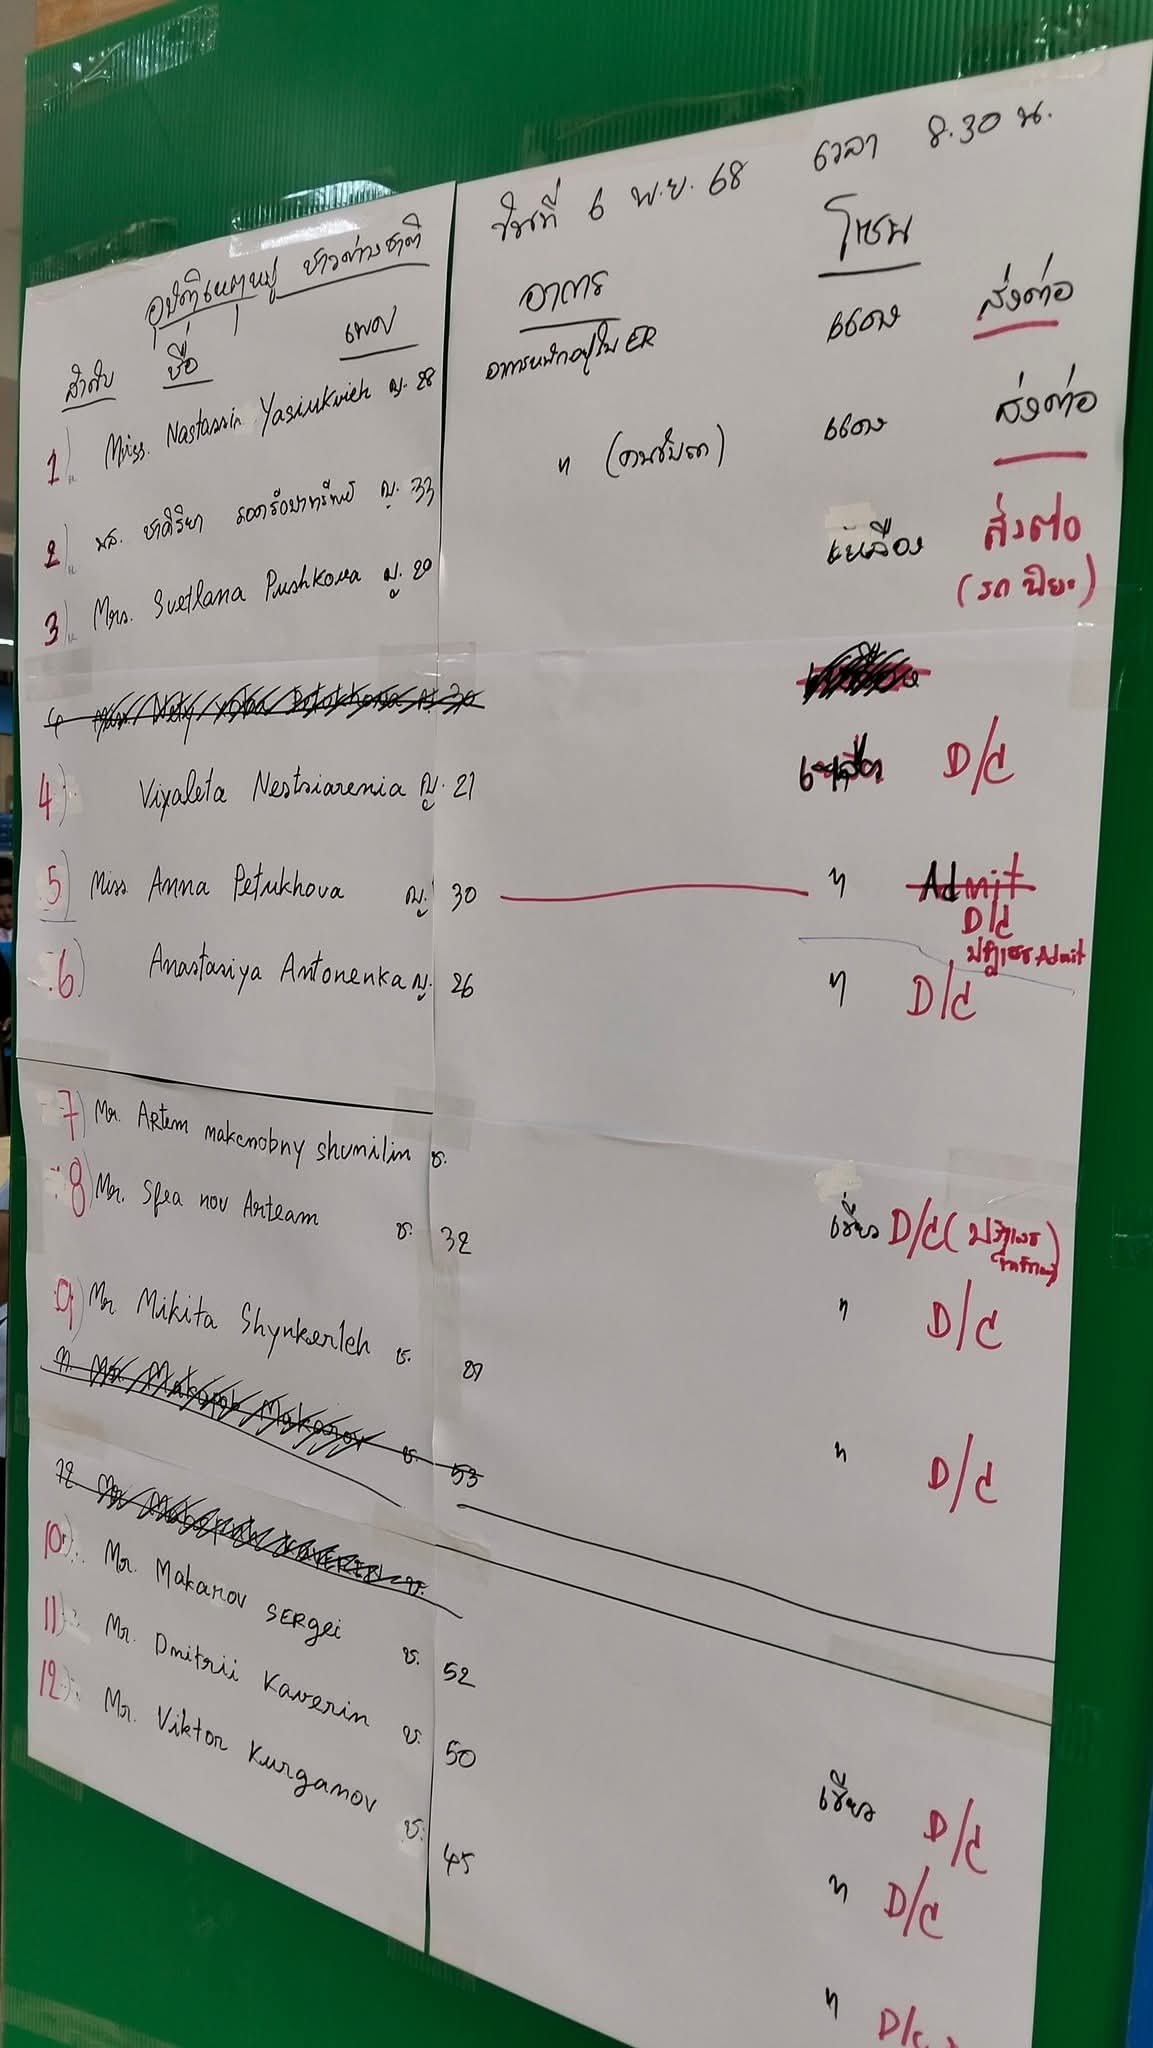 อุบัติเหตุหมู่ ชาวต่างชาติ วันที่ 6 พ.ย. 68 เวลา 8.30 น.
ลำดับ ชื่อ เพศ อาการ โซน
1) Miss. Nastassin Yasiukvich ญ. 28 อาการหนักอยู่ใน ER แดง ส่งต่อ
2) นส. ญ. 33 " (คนขับรถ) แดง ส่งต่อ
3) Mrs. Svetlana Pushkova ญ. 29 เหลือง ส่งต่อ
(รถ )
4) Vixaleta Nestsiarenia ญ. 21 D/C
5) Miss Anna Petukhova ญ. 30 " Admit
D/C
ปฏิเสธ Admit
6) Anastasiya Antonenka ญ. 26 " D/C
7) Mr. Artem makenobny shumilin ช. เขียว D/C (ปฏิเสธ
8) Mr. Sfea nov Arteam ช. 32 " D/C
9) Mr Mikita Shynkerleh ช. 27 " D/C
53
10) Mr. Makarov SERgei ช. 52 เขียว D/C
11) Mr. Dmitrii Kaverin ช. 50 " D/C
12) Mr. Viktor Kurganov ช. 45 " D/C